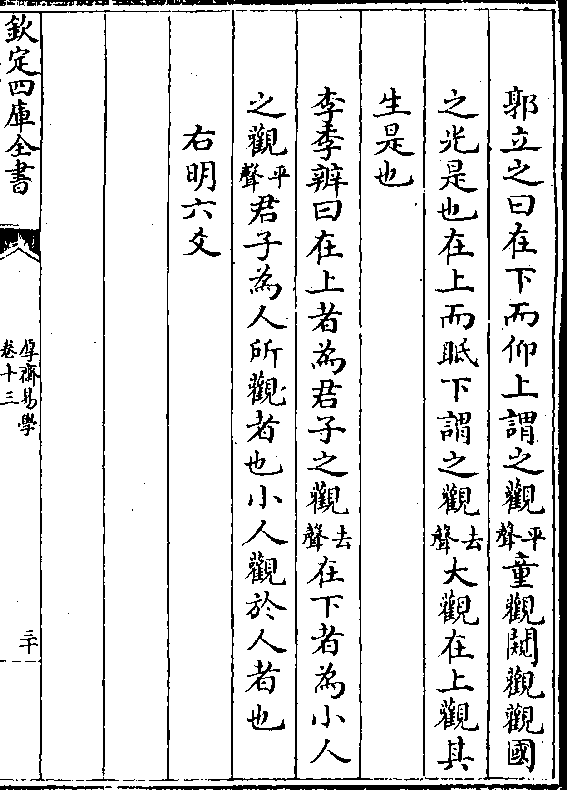 郭立之曰在下而仰上謂之觀平聲童觀闚觀觀國
之光是也在上而眡下謂之觀去聲大觀在上觀其
生是也
李季辨曰在上者為君子之觀去聲在下者為小人
之觀平聲君子為人所觀者也小人觀於人者也
右明六爻
欽定四庫全書
厚齋易學
卷十三
三十